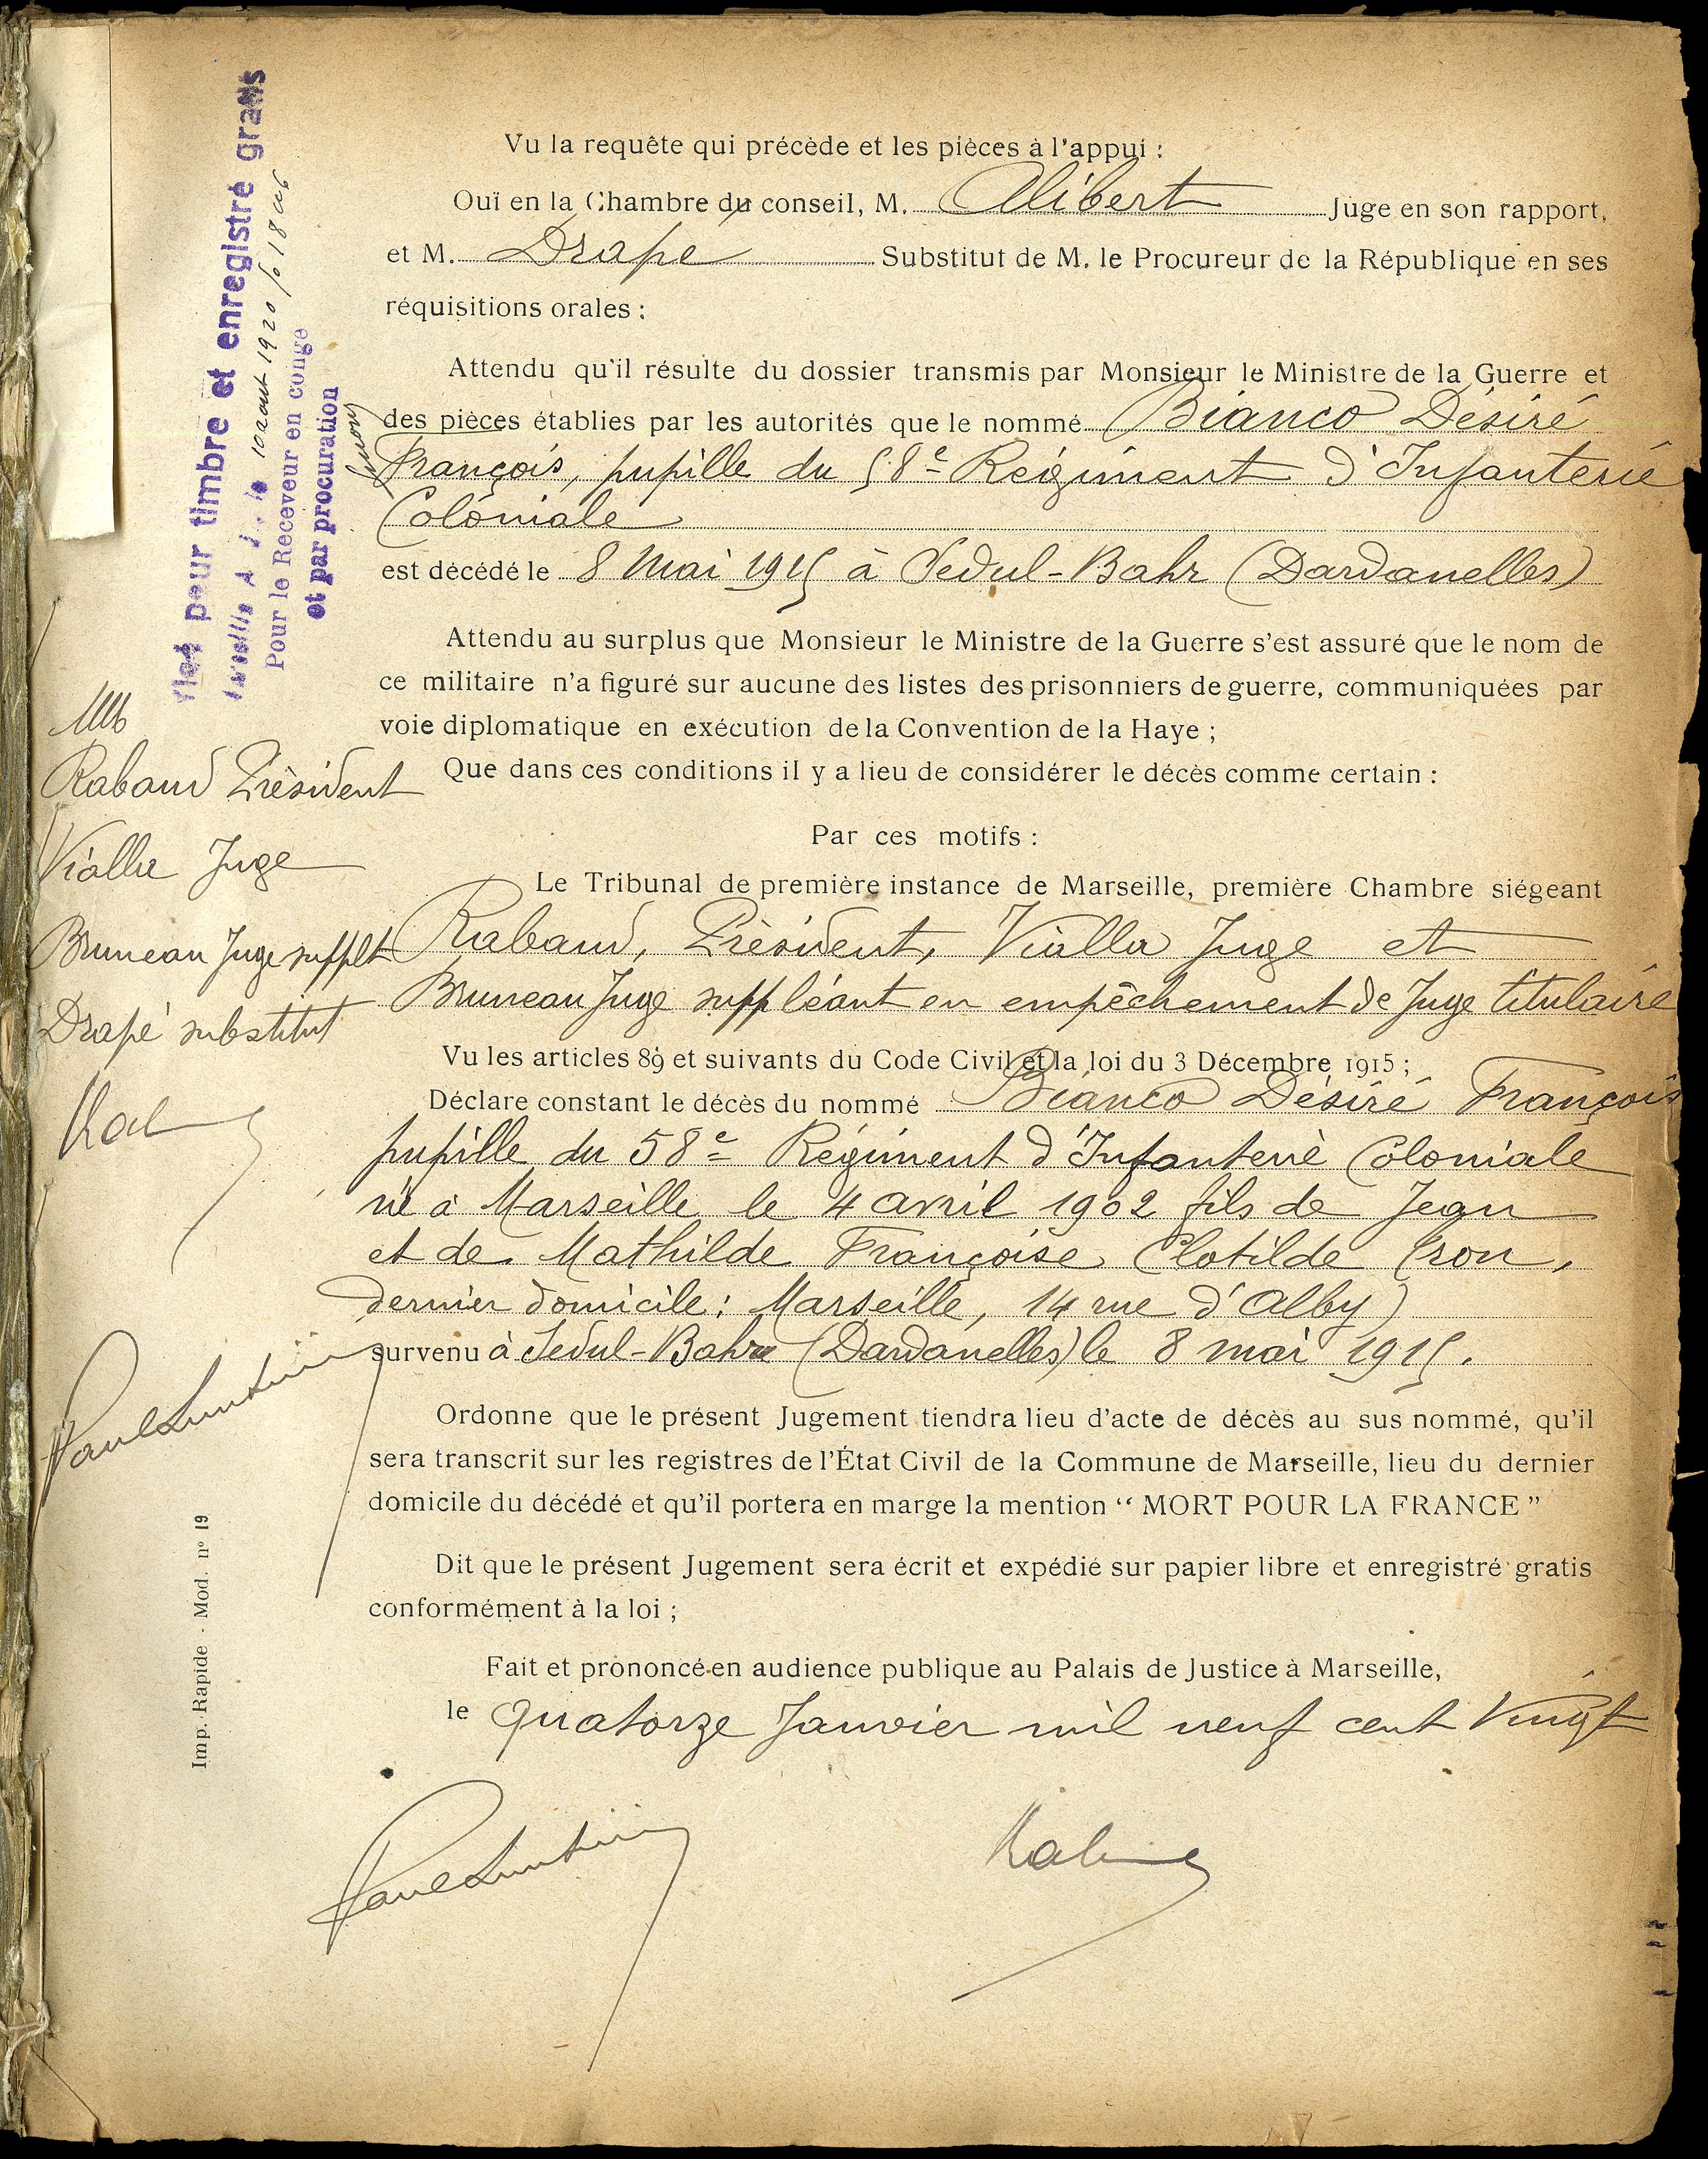 Vu la requête qui précède et les pièces à l'appui :
Ouï en la Chambre du conseil, M. Alibert Juge en son rapport,
et M. Drapé Substitut de M. le Procureur de la République en ses
réquisitions orales :
Attendu qu'il résulte du dossier transmis par Monsieur le Ministre de la Guerre et
des pièces établies par les autorités que le nommé Bianco Désiré
François, pupille du 58e Régiment d'Infanterie
Coloniale
est décédé le 8 Mai 1915 à Sedul-Bahr (Dardanelles)
Attendu au surplus que Monsieur le Ministre de la Guerre s'est assuré que le nom de
ce militaire n'a figuré sur aucune des listes des prisonniers de guerre, communiquées par
voie diplomatique en exécution de la Convention de la Haye ;
Que dans ces conditions il y a lieu de considérer le décès comme certain :
Par ces motifs :
Le Tribunal de première instance de Marseille, première Chambre siégeant
Rabaud, Président, Vialla Juge et
Bruneau Juge suppléant en empêchement de Juge titulaire
Vu les articles 89 et suivants du Code Civil et la loi du 3 Décembre 1915 ;
Déclare constant le décès du nommé Bianco Désiré François
pupille du 58e Régiment d'Infanterie Coloniale
né à Marseille le 4 avril 1902 fils de Jean
et de Mathilde Françoise Clotilde
dernier domicile : Marseille, 14 rue d'Alby)
survenu à Sedul-Bahr (Dardanelles) le 8 mai 1915.
Ordonne que le présent Jugement tiendra lieu d'acte de décès au sus nommé, qu'il
sera transcrit sur les registres de l'État Civil de la Commune de Marseille, lieu du dernier
domicile du décédé et qu'il portera en marge la mention “ MORT POUR LA FRANCE ”
Dit que le présent Jugement sera écrit et expédié sur papier libre et enregistré gratis
conformément à la loi ;
Fait et prononcé en audience publique au Palais de Justice à Marseille,
le quatorze Janvier mil neuf cent Vingt
Visé pour timbre et enregistré gratis
le 10 août 1920 fo 18
Pour le Receveur en congé
et par procuration
Rabaud Président
Vialla Juge
Bruneau Juge supplt
Drapé substitut
Imp. Rapide - Mod. nº 19